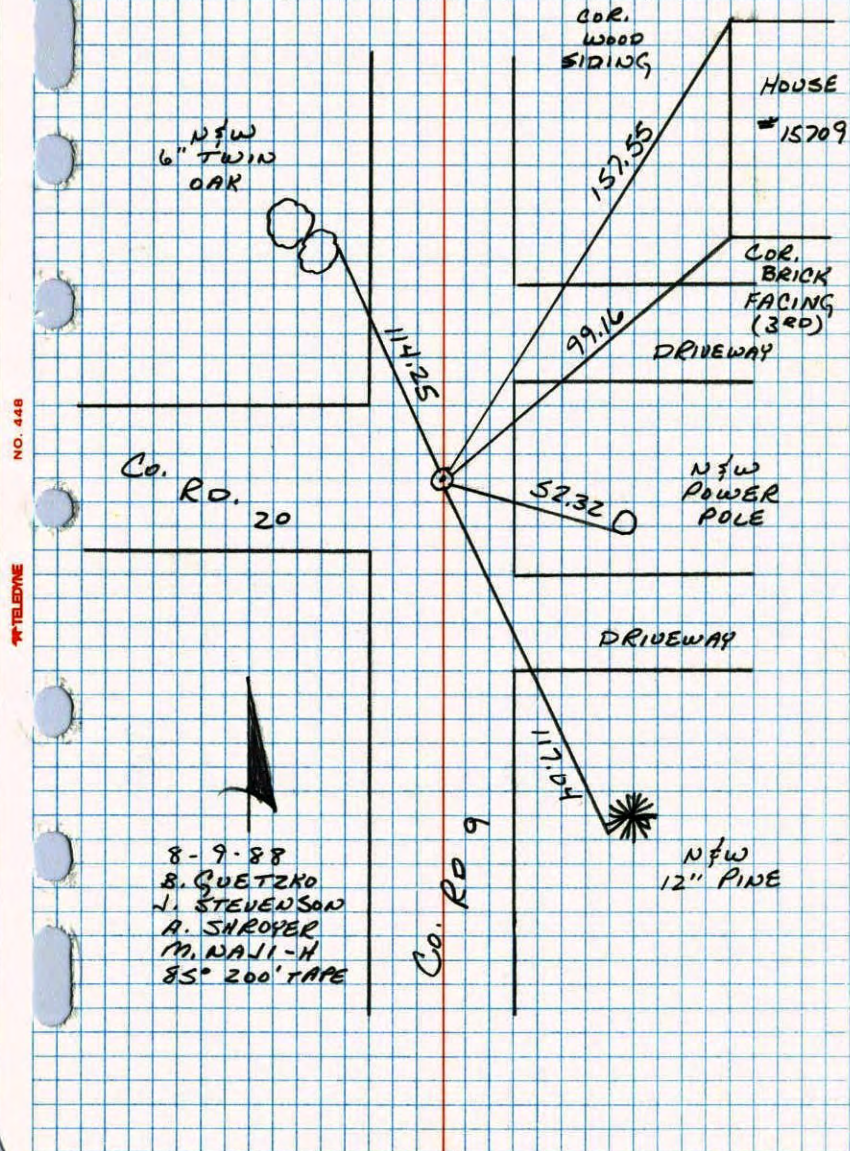 COR.
WOOD
SIDING
HOUSE
# 15709
N & W
6" TWIN
OAK
157.55
COR.
BRICK
FACING
(3RD)
99.16
DRIVEWAY
114.25
NO. 448
CO.
RD.
20
N & W
POWER
POLE
52.32
TELEDYNE
DRIVEWAY
112.04
CO. RD 9
N & W
12" PINE
8-9-88
B. GUETZKO
J. STEVENSON
A. SHROYER
M. NAJI-H
85° 200' TAPE